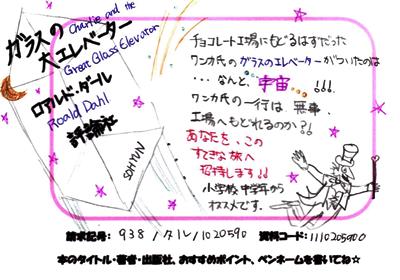 ガラスの
大エレベーター
Charlie and the
Great Glass Elevator
ロアルド・ダール
Roald Dahl
評論社
チョコレート工場にもどるはずだった
ワンカ氏のガラスのエレベーターがついたのは
…なんと、宇宙…!!!
ワンカ氏の一行は、無事、
工場へもどれるのか?!
あなたを、この
すてきな旅へ
招待します!!
小学校中学年から
オススメです。
請求記号: 938 /ダル/
資料コード:
本のタイトル・著者・出版社、おすすめポイント、ペンネームを書いてね☆